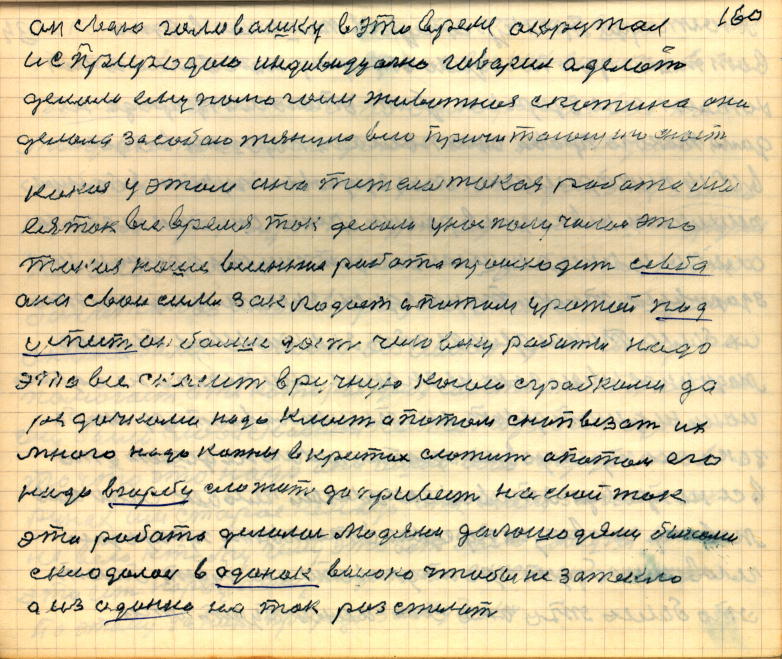 160
он свою головашку в это время окрутил
и с природою индивидуално говорил а делом
делали ему помогали животная скотина она
делала за собою тянула
какая у этом она тежела такая работа мы
ея так все время так делали у нас получалось это
такая наша висиння работа происходит севба
она свои сили закладает а потом урожай под
успеит он болше дает человеку работи надо
это все скасит вручную косою с грабками да
редочками надо класт а потом снопвезат их
много надо копни в крестах сложит а потом его
надо вгарбу сложит да привест на свой ток
эта работа делалас людями да лошодями
складалас в одонок високо чтоби не затекло
а из адонка на ток разстелит